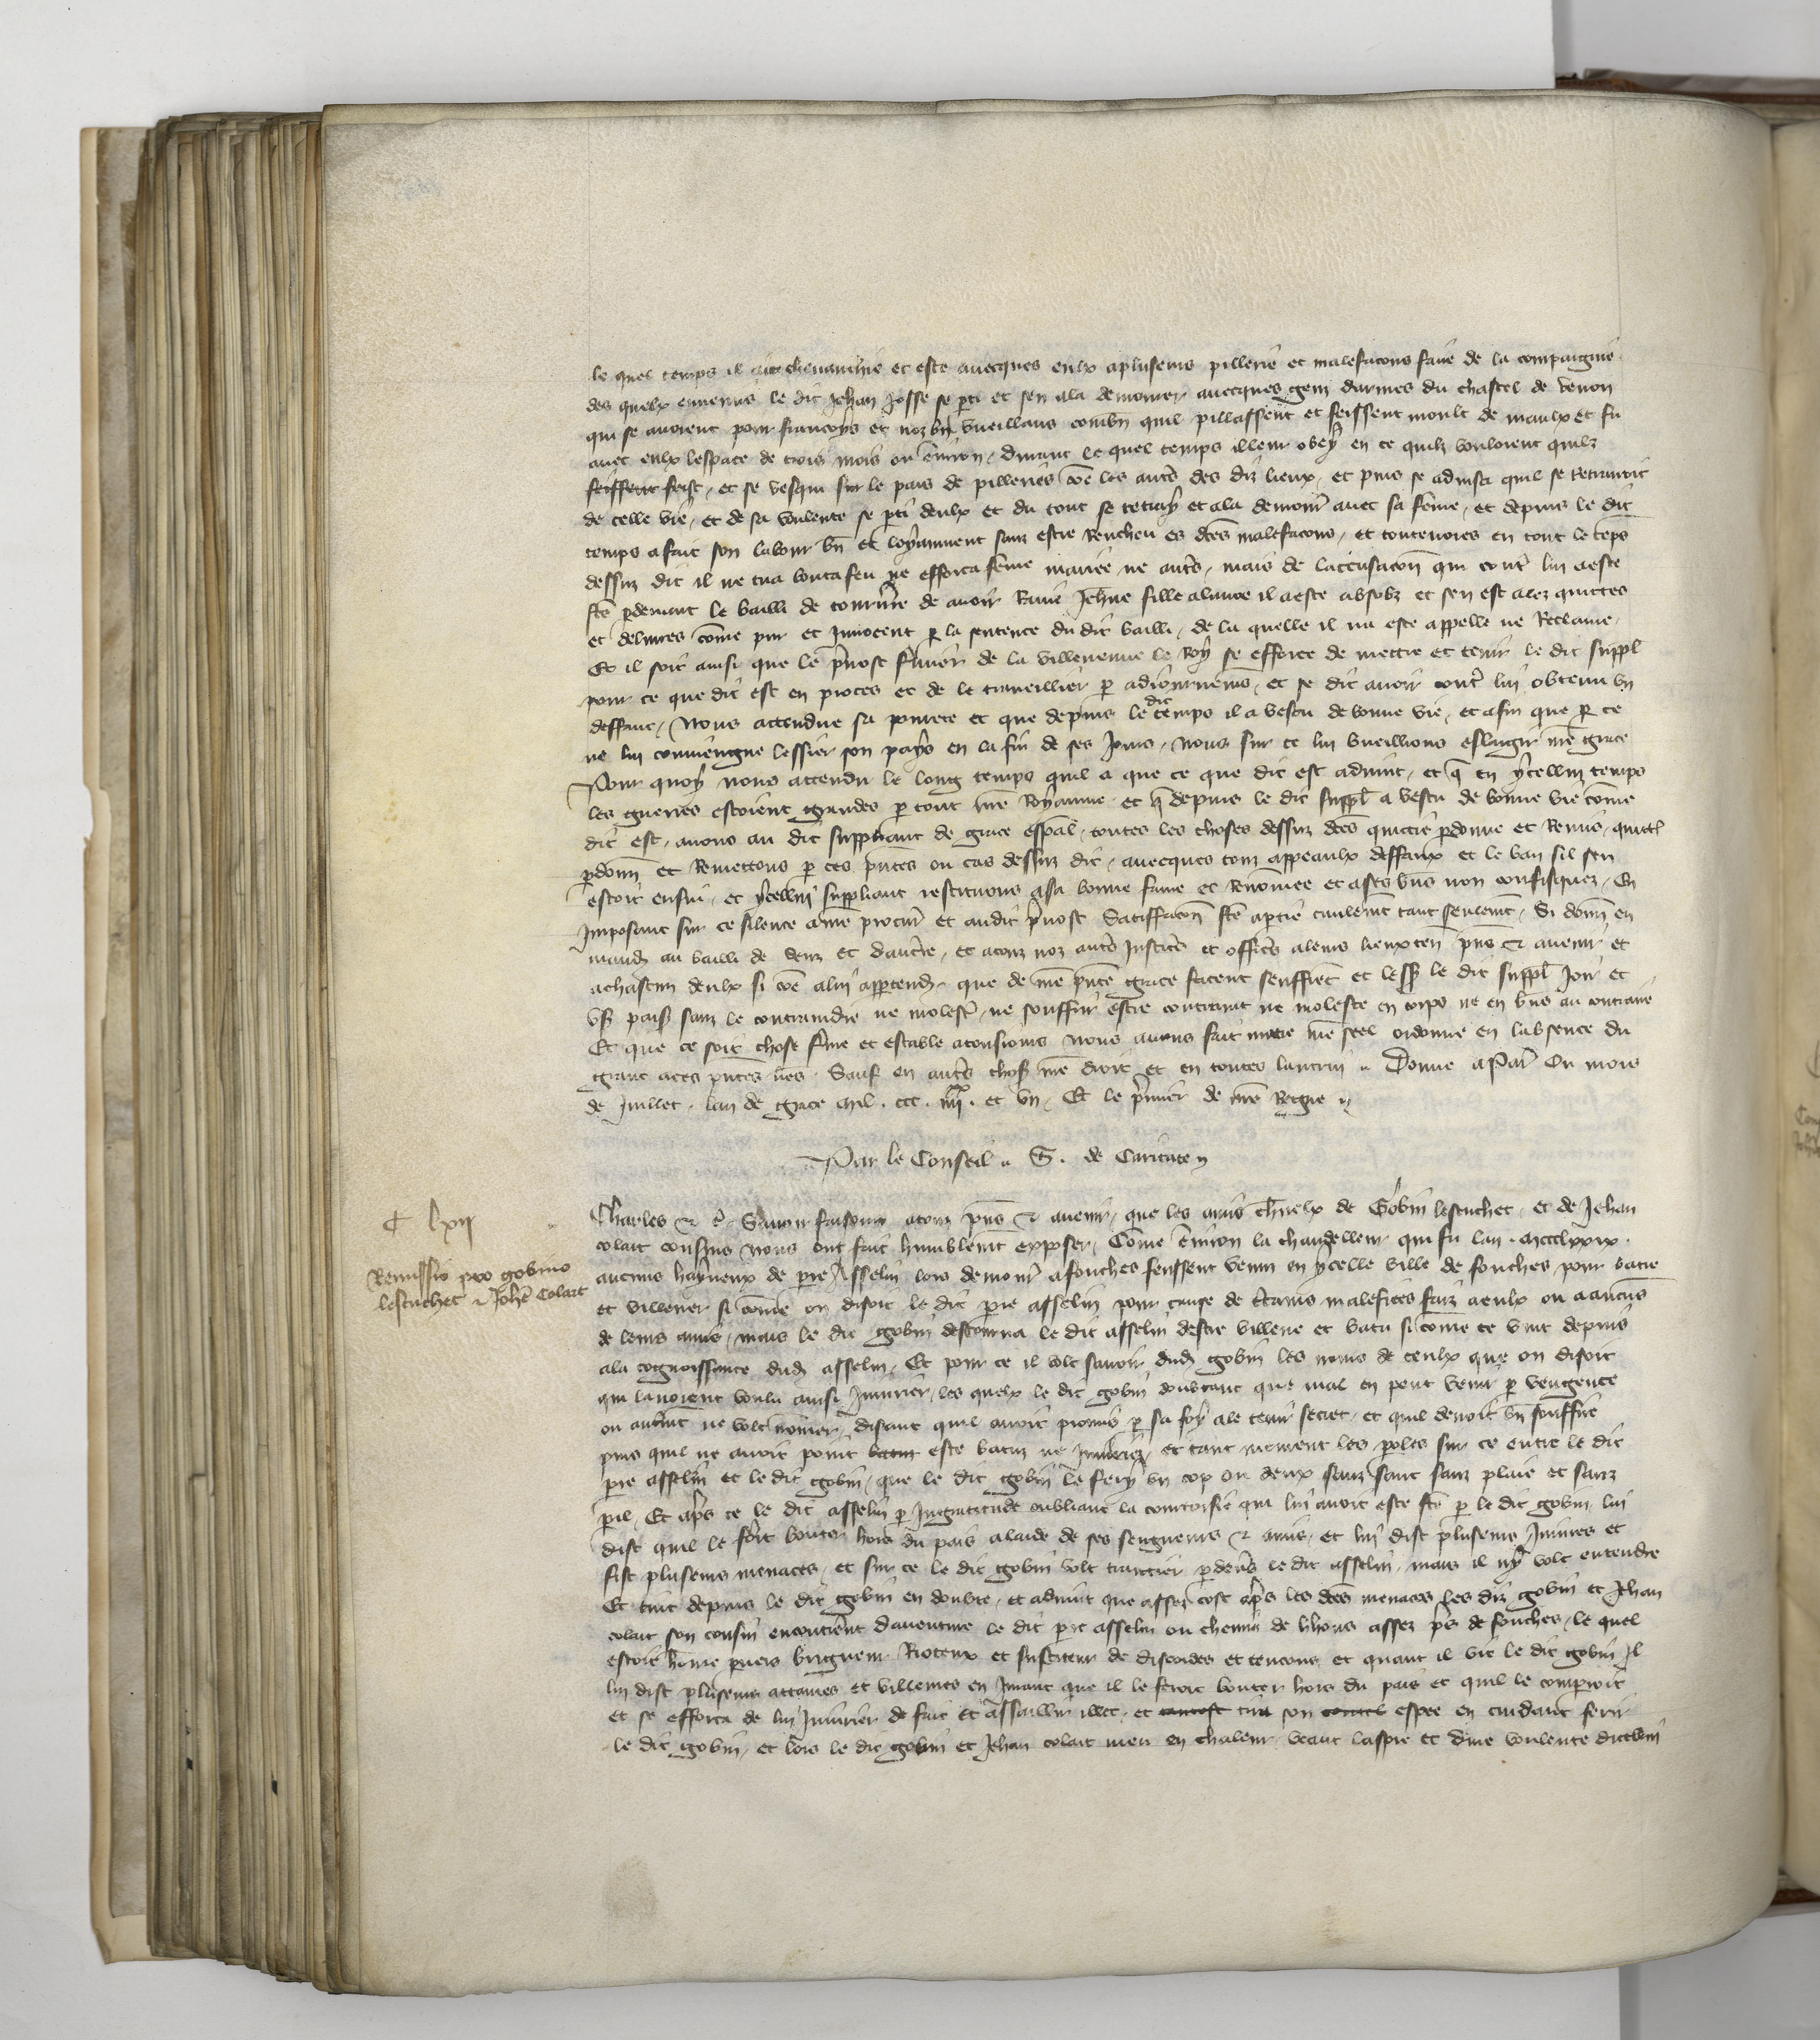 le quel temps il ait chevauchie et este avecques eulx a pluseurs pillerie et malefacons faire de la compaignie
des quelx ennemis le dit Jehan Josse se pti et sen ala demourer avecques gens darmes du chastel de Vevon
qui se avoient pour francoys et noz bn vueillans combn quil pillassent et feissent moult de maulx et fu
avec eulx lespace de trois mois ou environ, durant le quel temps il leur obey en ce quilz vouloient quilz
feissent feist, et se vesqui sur le pais de pilleries coe les autres des diz lieux, et puis se advisa quil se retrairoit
de celle vie, et de sa voulente se pti deulx et du tout se retrahy et ala demour avec sa feme, et depuis le dit
temps a fait son labour bn et loyaument sanz estre rencheu es dces malefacons, et toutevoies en tout le teps
dessus dit il ne tua bouta feu ne efforca feme mariee ne autre, mais de laccusacon qui contr lui a este
fce pdevant le bailli de de avoir ravi Jehne fille il a este absolz et sen est alez quictes
et delivres come pur et innocent p la sentence du dit bailli, de la quelle il na este appelle ne reclame,
Et il soit ainsi que le pvost fmier de la Villeneuve le Roy se efforce de mettre et tenir le dit suppl
pour ce que dit est en proces et de le traveillier p adiournemens, et se dit avoir contr lui obtenu un
deffaut, Nous attendue sa povrete et que depuis le dit temps il a vescu de bonne vie, et afin que p ce
ne lui conviengne lessier son pays en la fin de ses jours, nous sur ce lui vueillions eslargir nre grace
Pour quoy nous attendu le long temps quil a que ce que dit est advint, et q en ycellui temps
les guerres estoient grandes p tout nre Royaume et q depuis le dit suppl a vescu de bonne vie come
dit est, avons au dit suppliant de grace espal, toutes les choses dessus dces quictie pdonne et remis, quictt
pdonn et remettons p ces pntes ou cas dessus dit, avecques touz appeaulx deffaux et le ban sil sen
estoit ensui, et ycellui suppliant restituons a sa bonne fame et renomee et a ses bns non confisquez, En
imposant sur ce silence a nre procur et audit pvost Satiffacon fce a ptie civilemt tant seulemt, Si donn en
mand au bailli de Senz et dautre, et a touz noz autres justices et offices a leurs lieuxten pns et avenir et
a chascun deulx si coe a lui appartend, que de nre pnte grace facent seuffret et less le dit suppl joir et
us pais sanz le contraindre ne molest, ne souffrir estre contraint ne moleste en corps ne en bns au contraire
Et que ce soit chose fme et estable a tousiours Nous avons fait mtre nre seel ordonne en labsence du
grant a ces pntes lres. Sauf en autres chos nre droit et en toutes lautrui. Donne a Par Ou mois
de Juillet. lan de grace mil. ccc. iiiixx. et un, Et le pmier de nre Regne
Par le Conseil. S. de Caritate
C lxii
Remissio pro gobino
lescuchet et Johe Colart
Charles et c. Savoir faisons a touz pns et avenir, que les amis charnelx de Gobin lescuchet, et de Jehan
colart cousins nous ont fait humblemt exposer, Come environ la chandelleur qui fu lan. mccclxxix.
aucuns hayneux de pre Asselin lors demour a fouches feussent venus en ycelle ville de fouches, pour batre
et villener si come on disoit le dit pre asselin pour cause de ctains malefices faiz a eulx ou a aucuns
de leurs amis, mais le dit gobin destourna le dit asselin destre villene et batu si come ce vint depuis
a la cognoissance dud asselin, Et pour ce il volt savoir dud gobin les noms de ceulx que on disoit
qui lavoient voulu ainsi injurier, les quelx le dit gobin doubtant que mal en peut venir p vengence
ou autrmt ne volt nomer, disant quil avoit promis p sa foy a le tenir secret, et quil devoit bn souffire
puis quil ne avoit point batus este batuz ne injuriez, et tant meurent les poles sur ce entre le dit
pre asselin et le dit gobin, que le dit gobin le fery un cop ou deux sanz sanc sanz plaie et sanz
pil, Et aps ce le dit asselin p ingratitude oubliant la courtoisie qui lui avoit este fce p le dit gobin lui
dist quil le feroit bouter hors du pais a laide de ses seigneurs et amis, et lui dist pluseurs injures et
fist pluseurs menaces, et sur ce le dit gobin volt traictier pdevers le dit asselin, mais il ny volt entendre
Et tint depuis le dit gobin en doubte, et advint que assez tost aps les dces menaces les diz gobin et Jehan
colart son cousin encontrent daventure le dit pre asselin ou chemin de assez ps de fouches, le quel
estoit home pvers bragueur Rioteux et susciteur de discordes et tencons, et quant il vit le dit gobin Il
lui dist pluseurs attaines et villenies en jurant que il le feroit bouter hors du pais et quil le comparroit
et se efforca de lui injurier de fait et assaillir illec, et tantost tira son coutel espee en cuidant ferir
le dit gobin, et lors le dit gobin et Jehan colart meu en chaleur, veant laspre et dure voulente dicellui